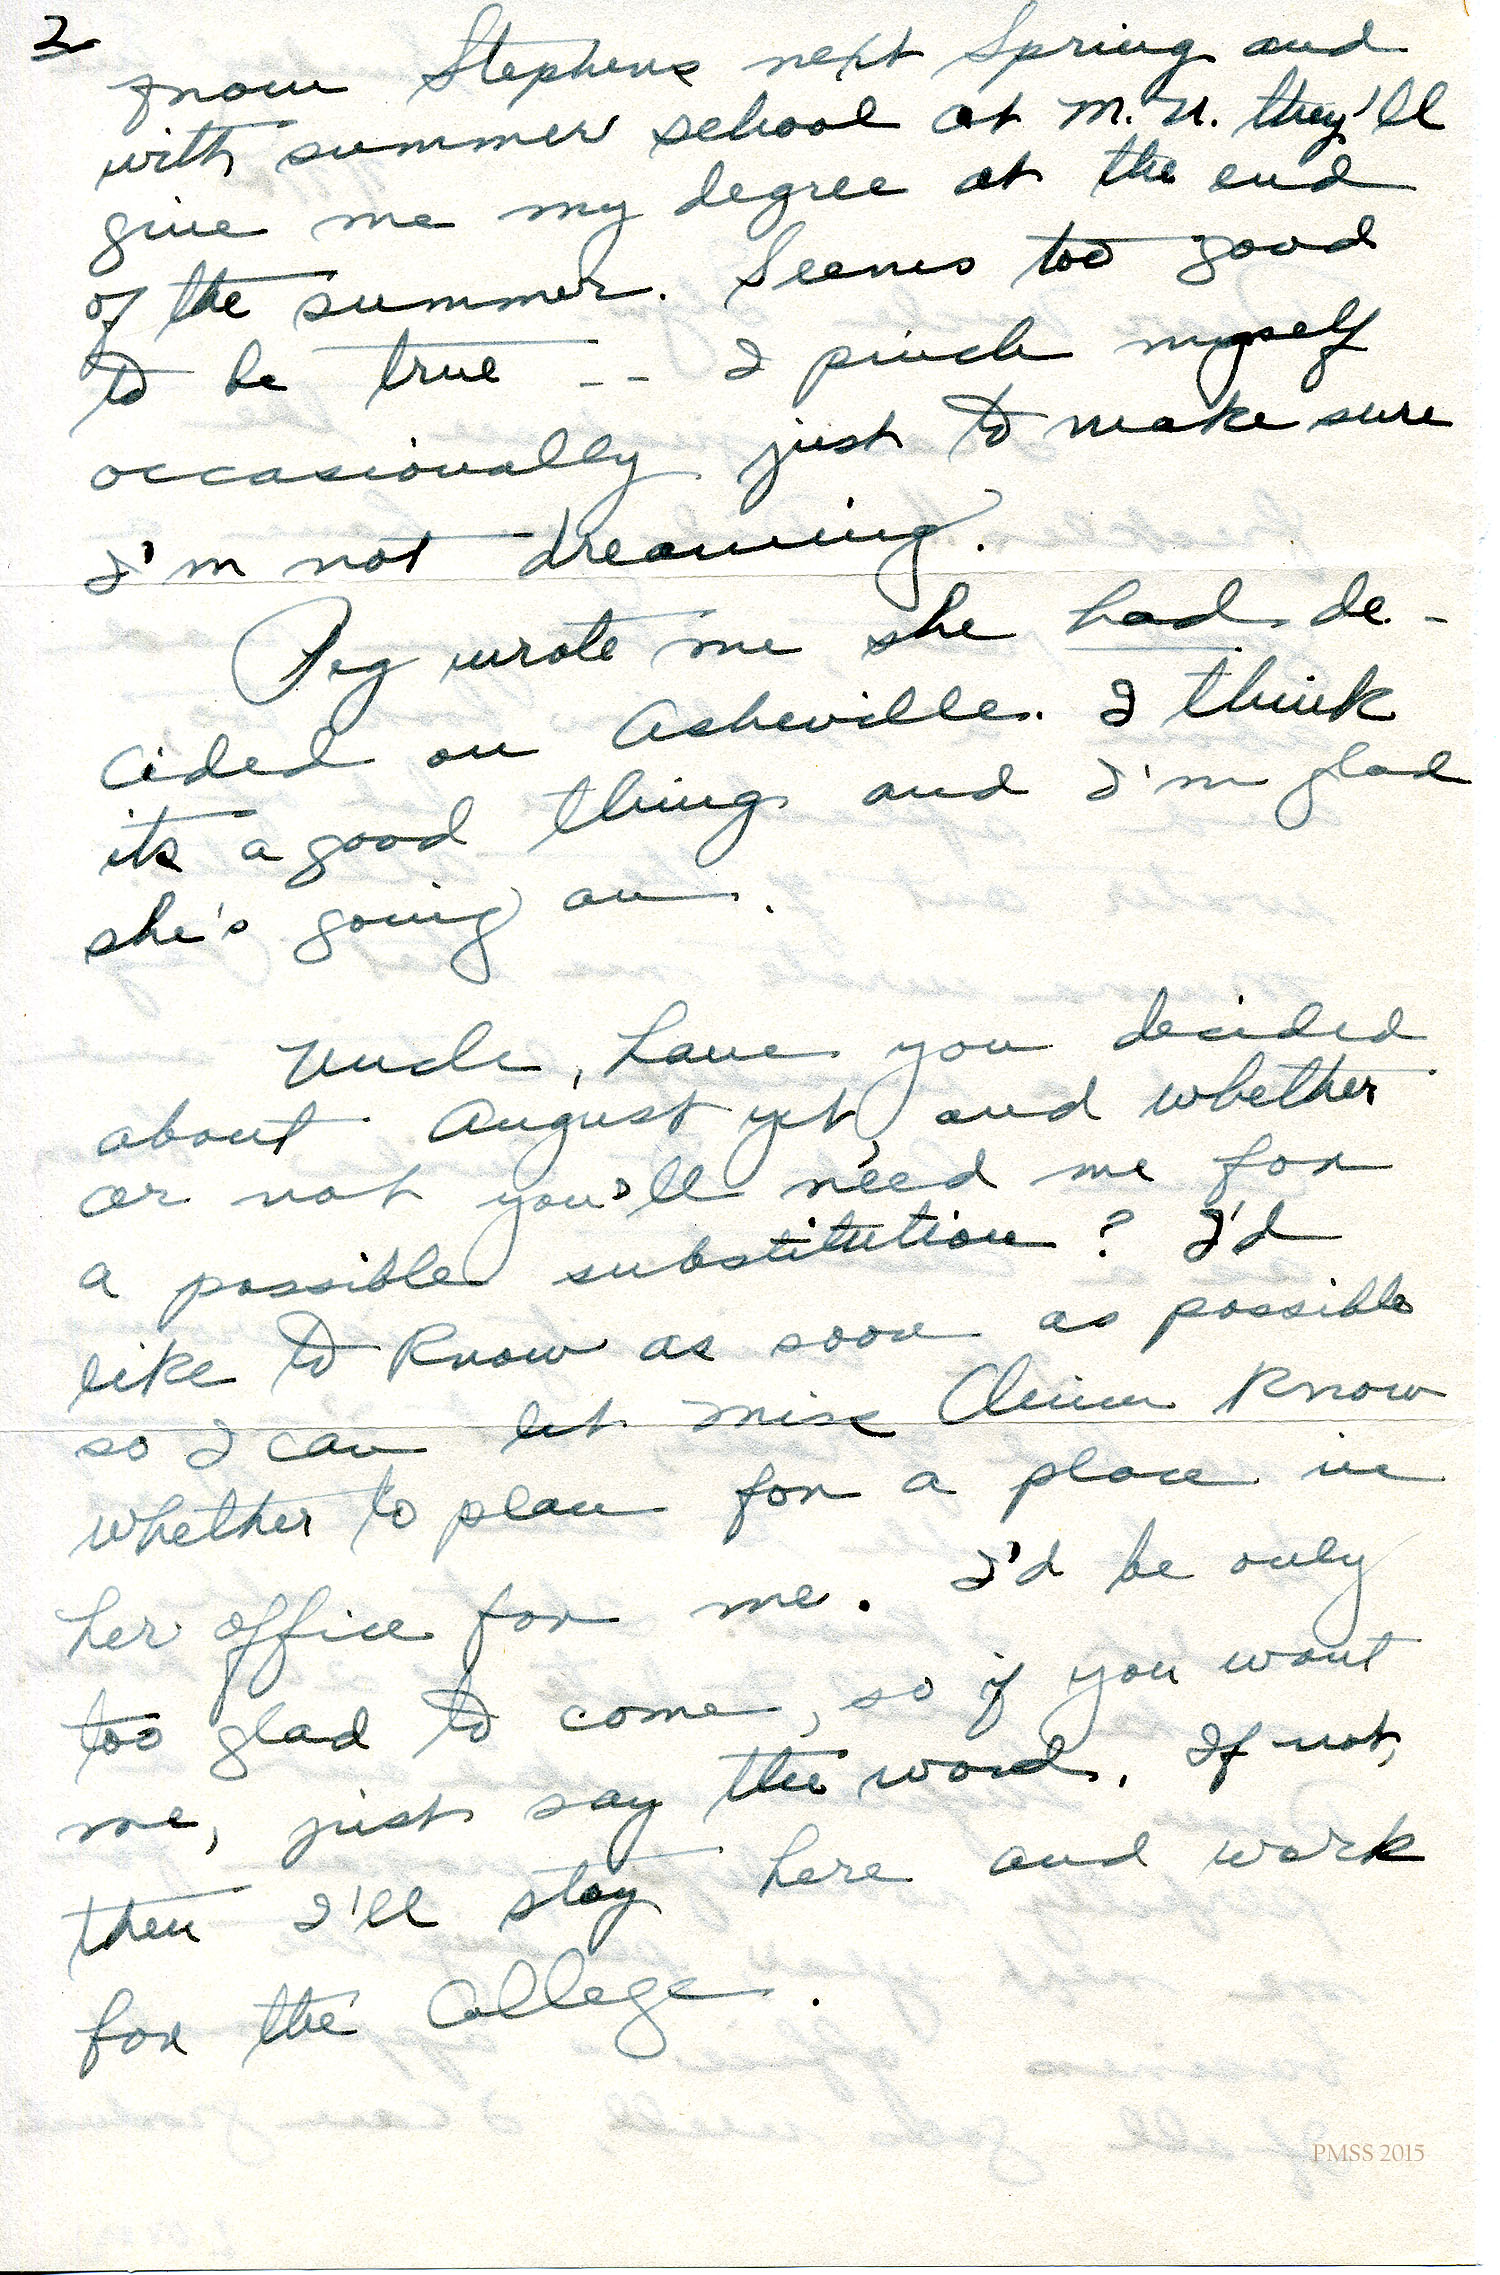 2
from Stephens next Spring and
with summer school at M.U. they'll
give me my degree at the end
of the summer. Seems too good
to be true -- I pinch myself
occasionally just to make sure
I'm not dreaming.
Peg wrote me she had de-
cided on Asheville. I think
its a good thing and I'm glad
she's going on.
Uncle, have you decided
about August yet, and whether
or not you'll need me for
a possible substitution? I'd
like to know as soon as possible
so I can let Miss know
whether to plan for a place in
her office for me. I'd be only
too glad to come, so if you want
me, just say the word. If not,
then I'll stay here and work
for the College.
PMSS 2015